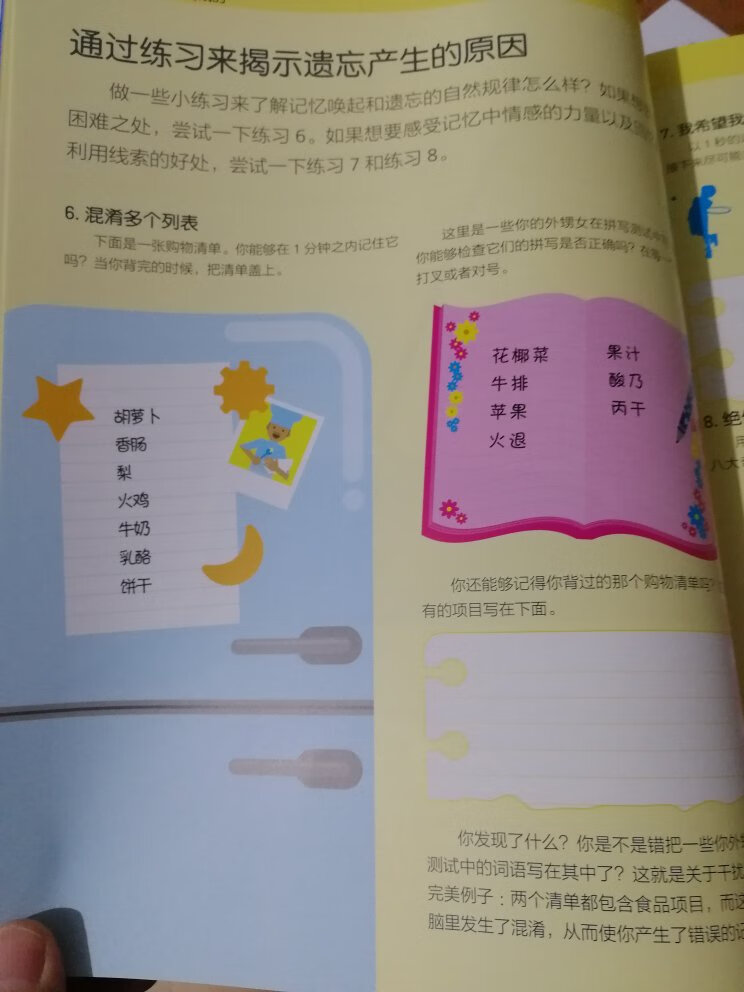 通过练习来揭示遗忘产生的原因
做一些小练习来了解记忆唤起和遗忘的自然规律怎么样？如果想
困难之处，尝试一下练习6。如果想要感受记忆中情感的力量以及
利用线索的好处，尝试一下练习7和练习8。
6. 混淆多个列表
下面是一张购物清单。你能够在1分钟之内记住它
吗？当你背完的时候，把清单盖上。
胡萝卜
香肠
梨
火鸡
牛奶
乳酪
饼干
这里是一些你的外甥女在拼写测试中
你能够检查它们的拼写是否正确吗？在
打叉或者对号。
花椰菜
牛排
苹果
火退
果汁
酸乃
丙干
你还能够记得你背过的那个购物清单吗？
有的项目写在下面。
你发现了什么？你是不是错把一些你外
测试中的词语写在其中了？这就是关于干扰
完美例子：两个清单都包含食品项目，而这
脑里发生了混淆，从而使你产生了错误的记
7. 我希望我
以1秒的
接下来尽可能
8. 绝
用
八大